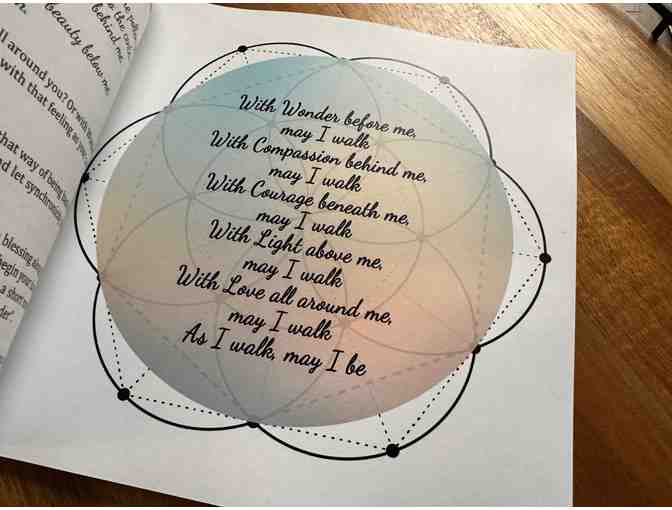 beauty below me
behind me.
all around you? Or with
with that feeling
that way of being
and let synchronic
blessing
begin your
a short
With Wonder before me,
may I walk
With Compassion behind me,
may I walk
With Courage beneath me,
may I walk
With Light above me,
may I walk
With Love all around me,
may I walk
As I walk, may I be